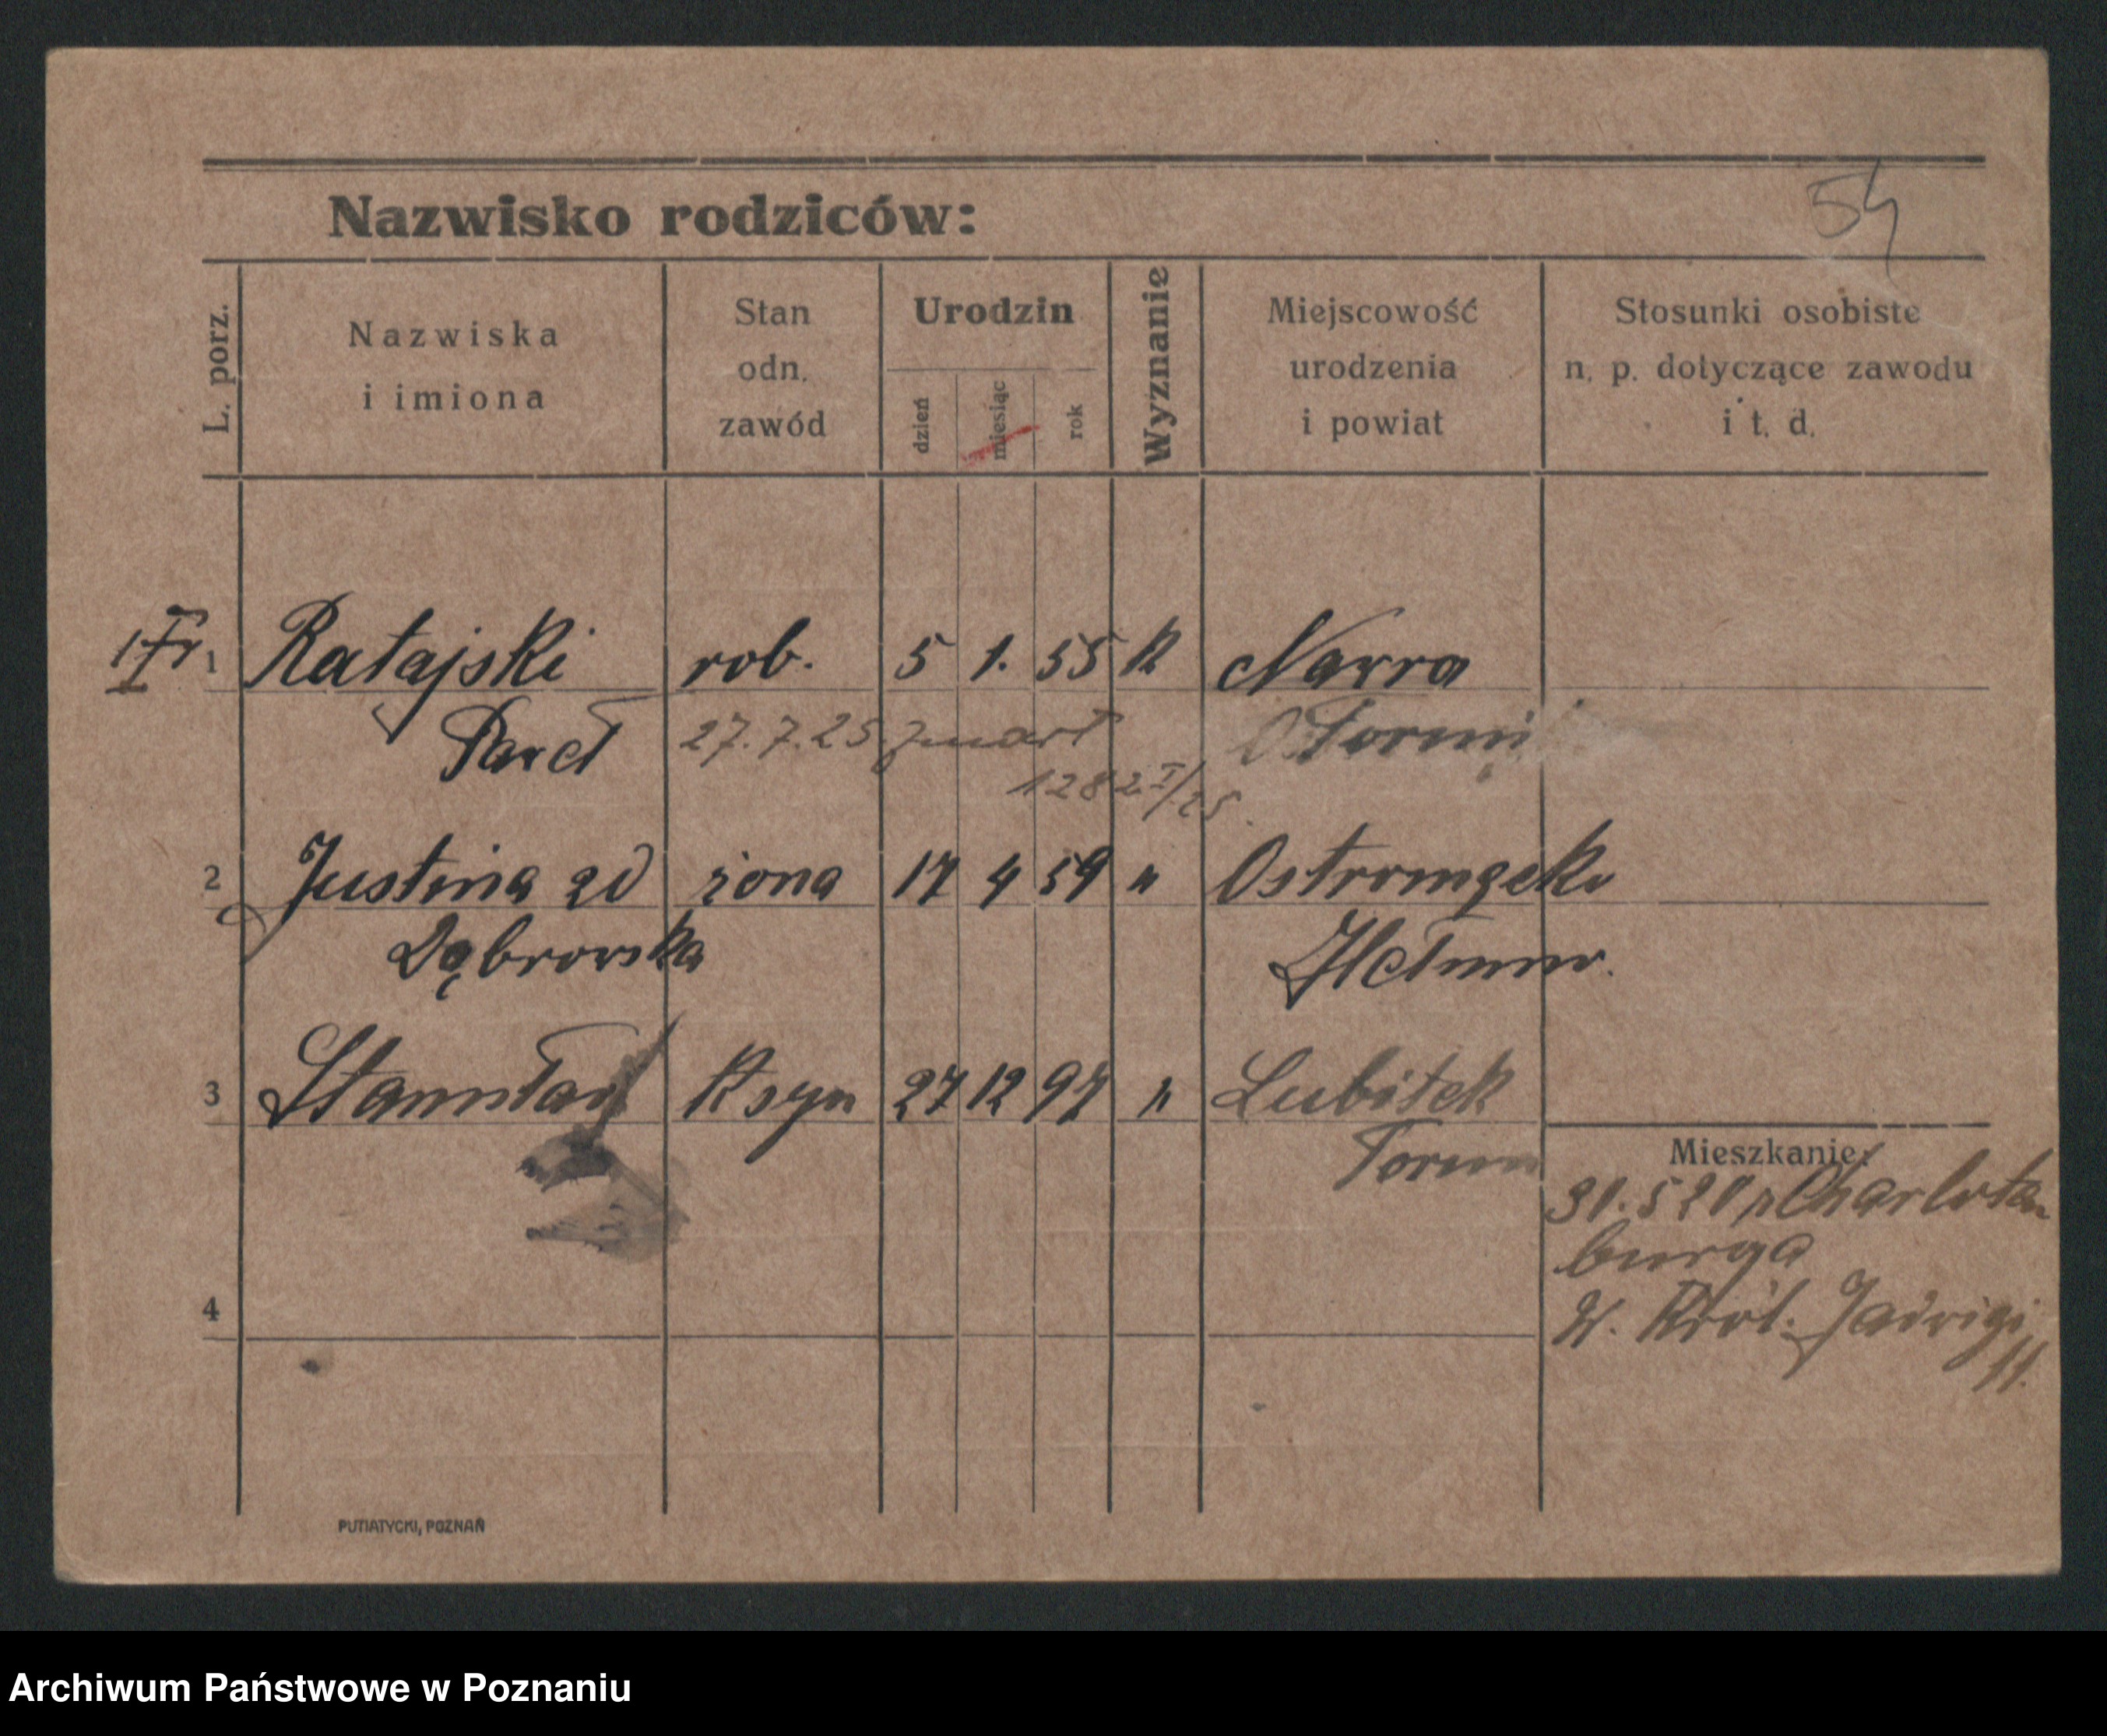 54
Nazwisko rodziców:
L. porz.
Nazwiska
i imiona
Stan
odn.
zawód
Urodzin
dzień
miesiąc
rok
Wyznanie
Miejscowość
urodzenia
i powiat
Stosunki osobiste
n. p. dotyczące zawodu
i t. d.
1 Ratajski rob. 5 1. 55 k Nawra
Paweł 27.7.25 zmarł
1282 I/25.
2 Justina zd żona 17 4 59 "
Dąbrowska
3 Stanisław syn 27 12 97 " Lubitek
Torun
Mieszkanie:
31.5 20 z Charloten
burga
Król. Jadwigi
11.
4
PUTIATYCKI, POZNAŃ
Archiwum Państwowe w Poznaniu